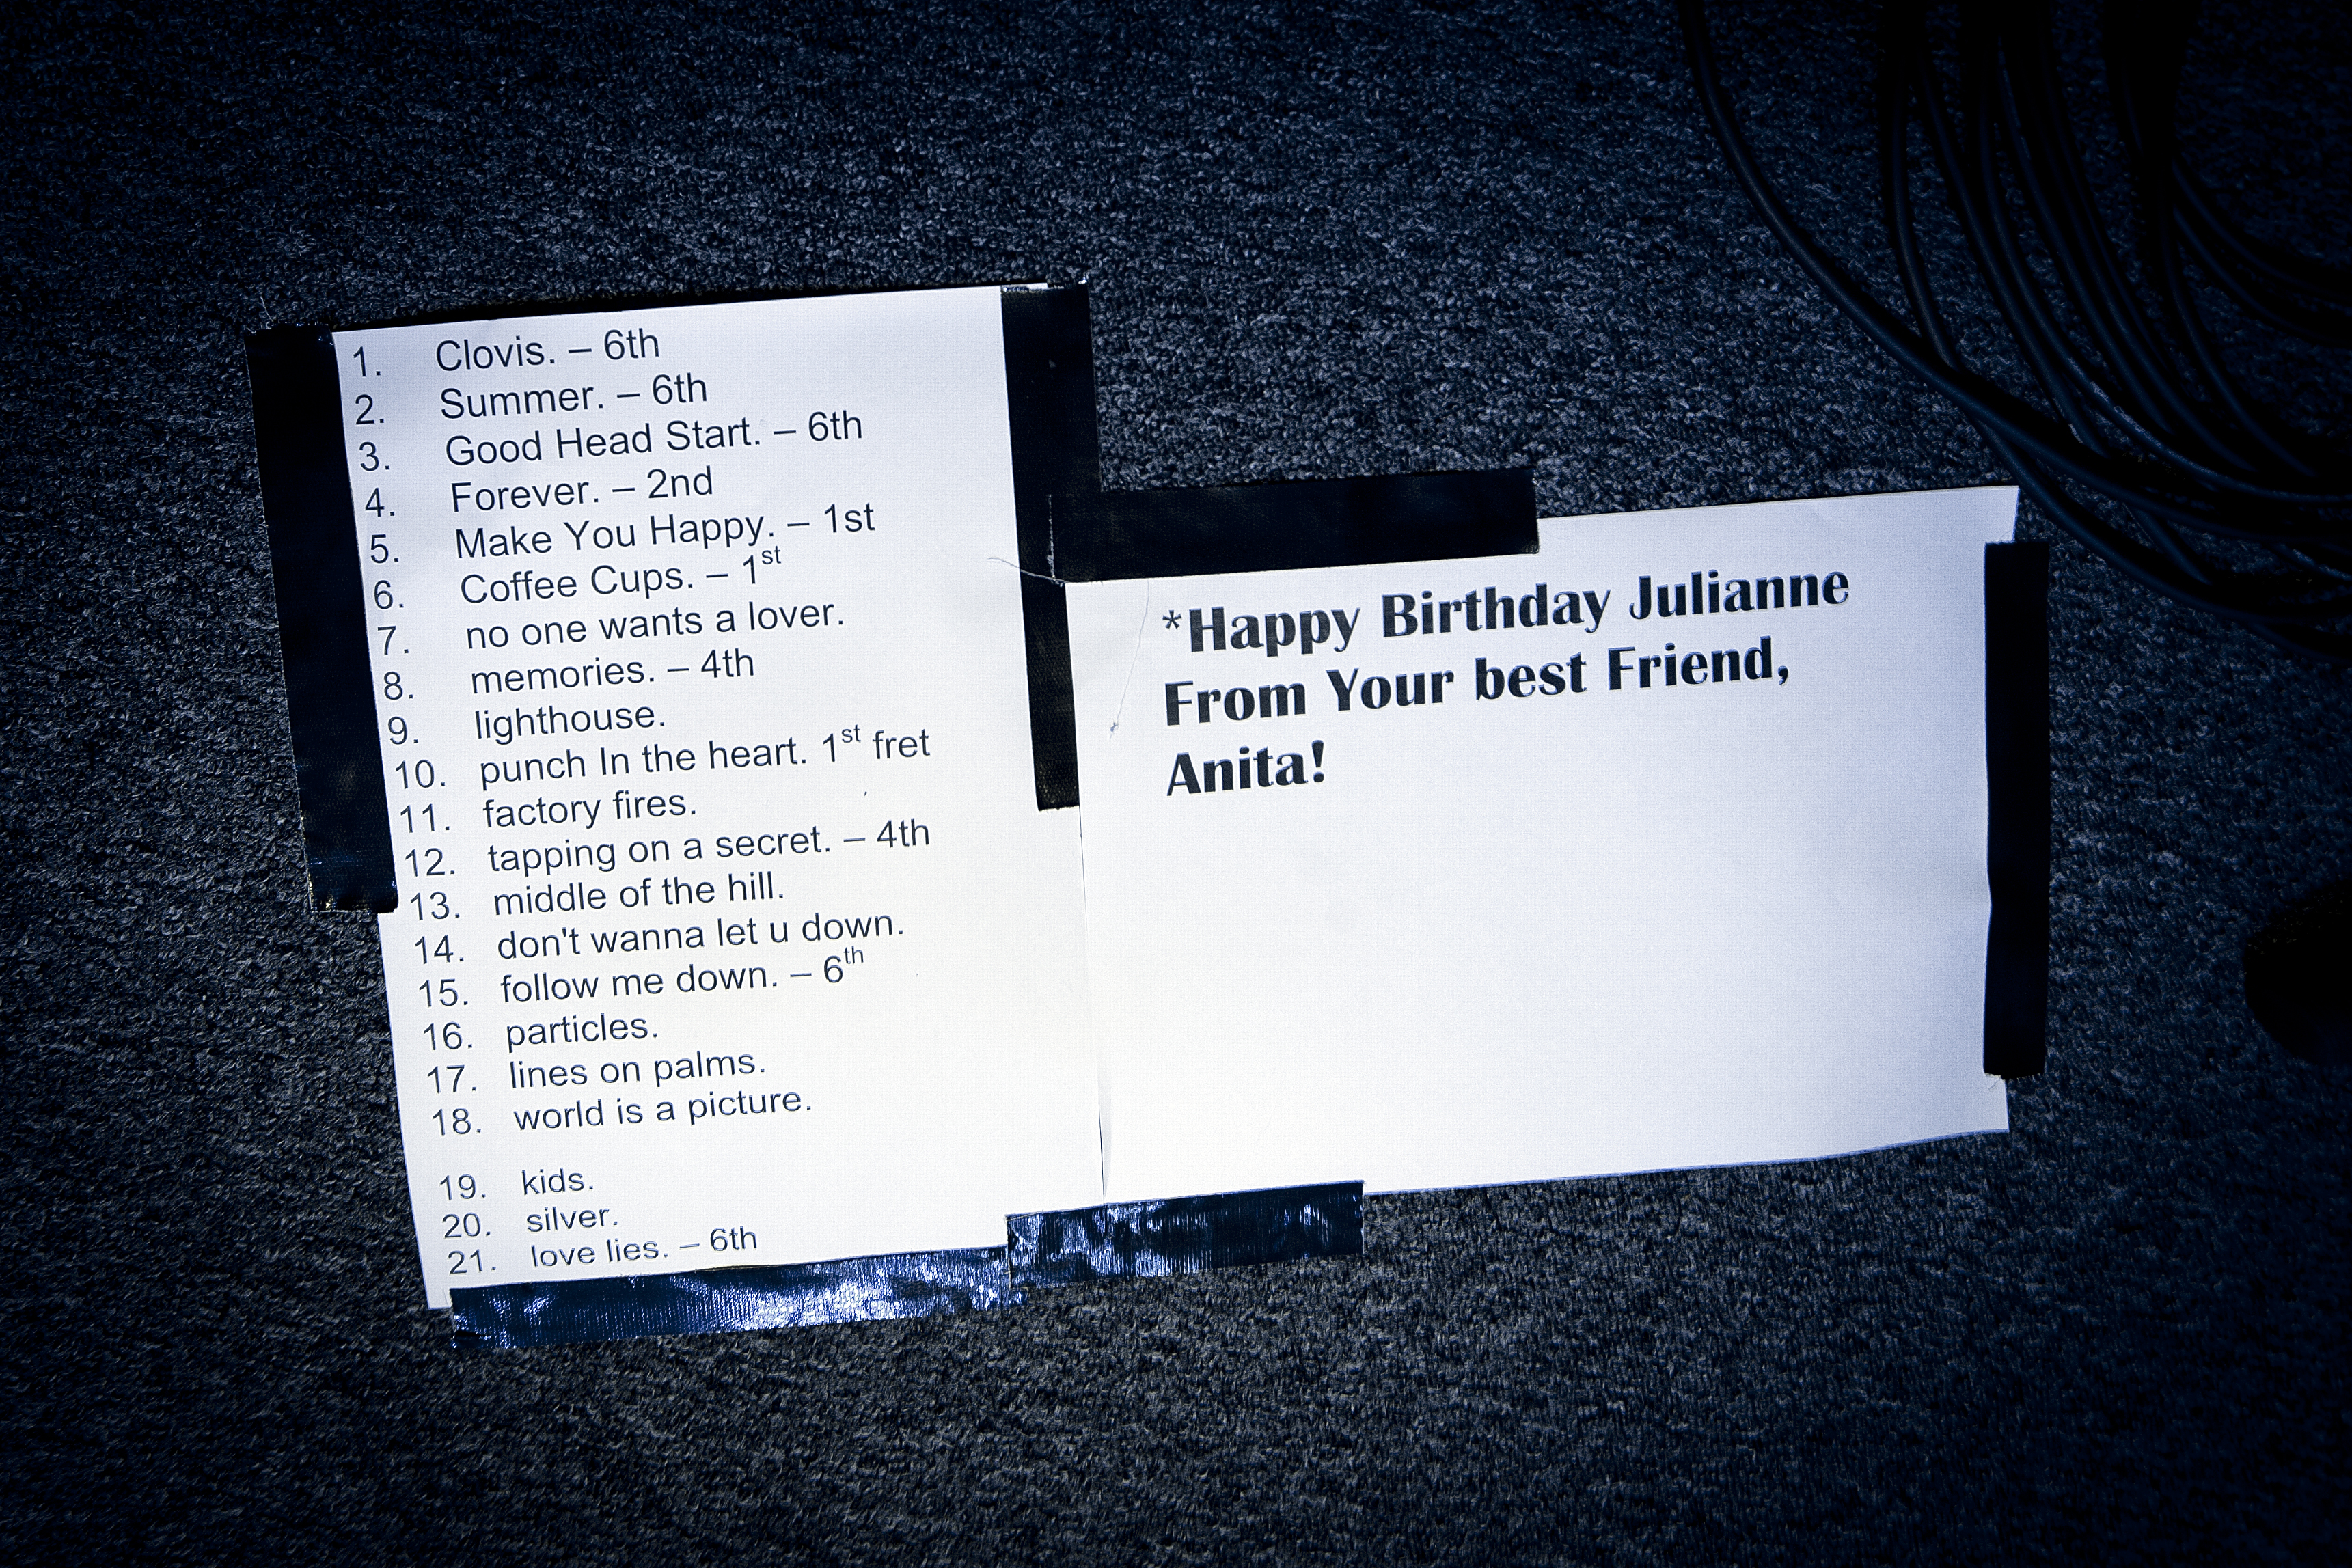 1. Clovis. – 6th
2. Summer. – 6th
3. Good Head Start. – 6th
4. Forever. – 2nd
5. Make You Happy. – 1st
6. Coffee Cups. – 1st
7. no one wants a lover.
8. memories. – 4th
9. lighthouse.
10. punch In the heart. 1st fret
11. factory fires.
12. tapping on a secret. – 4th
13. middle of the hill.
14. don't wanna let u down.
15. follow me down. – 6th
16. particles.
17. lines on palms.
18. world is a picture.
19. kids.
20. silver.
21. love lies. – 6th
*Happy Birthday Julianne
From Your best Friend,
Anita!